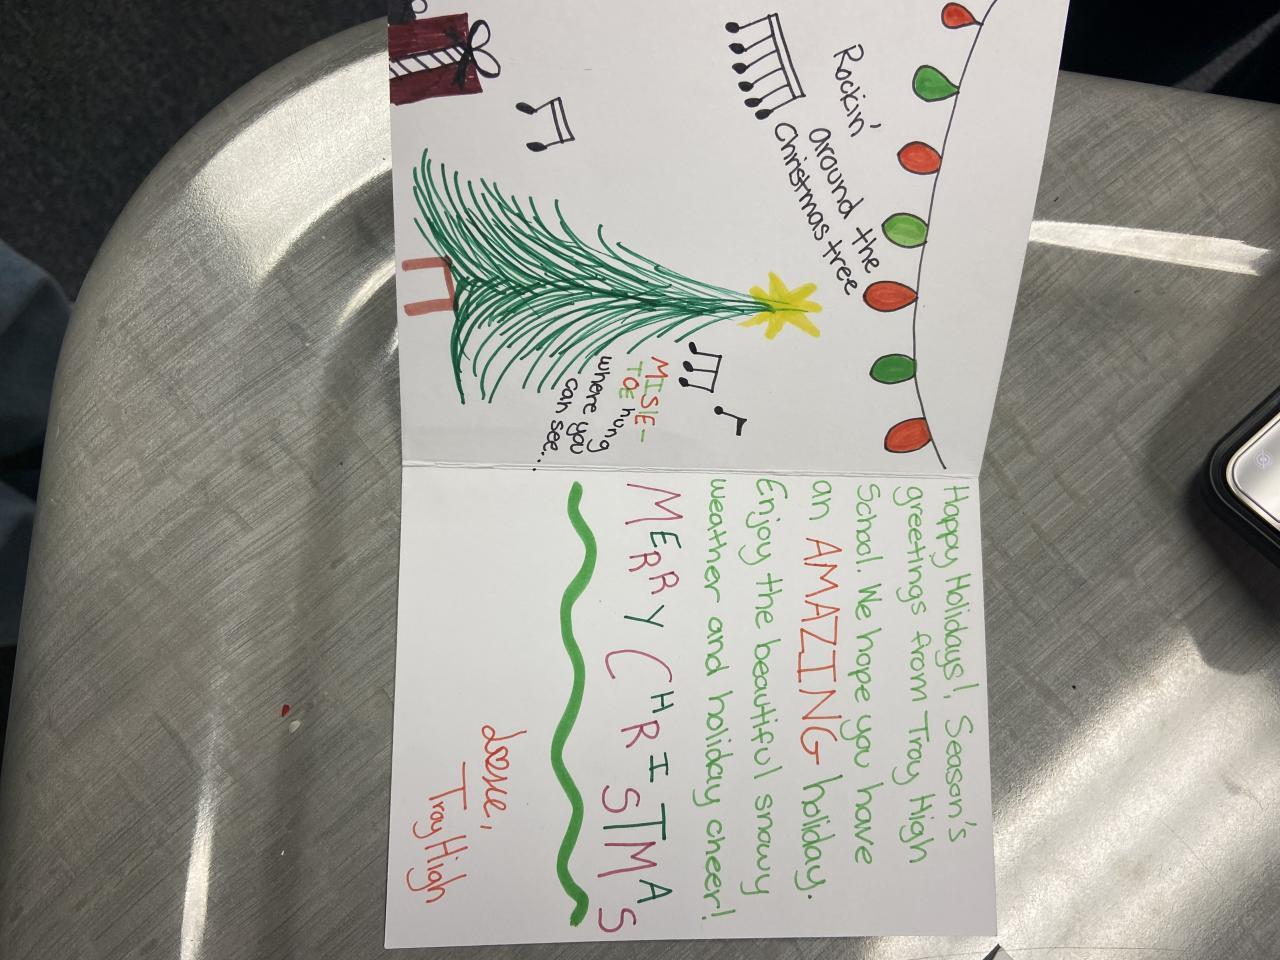 Rockin'
around the
Christmas tree
MISLE-
TOE hung
where you
can see...
Happy Holidays! Season's
greetings from Troy High
School. We hope you have
an AMAZING holiday.
Enjoy the beautiful snowy
weather and holiday cheer!
MERRY CHRISTMAS
Love,
Troy High